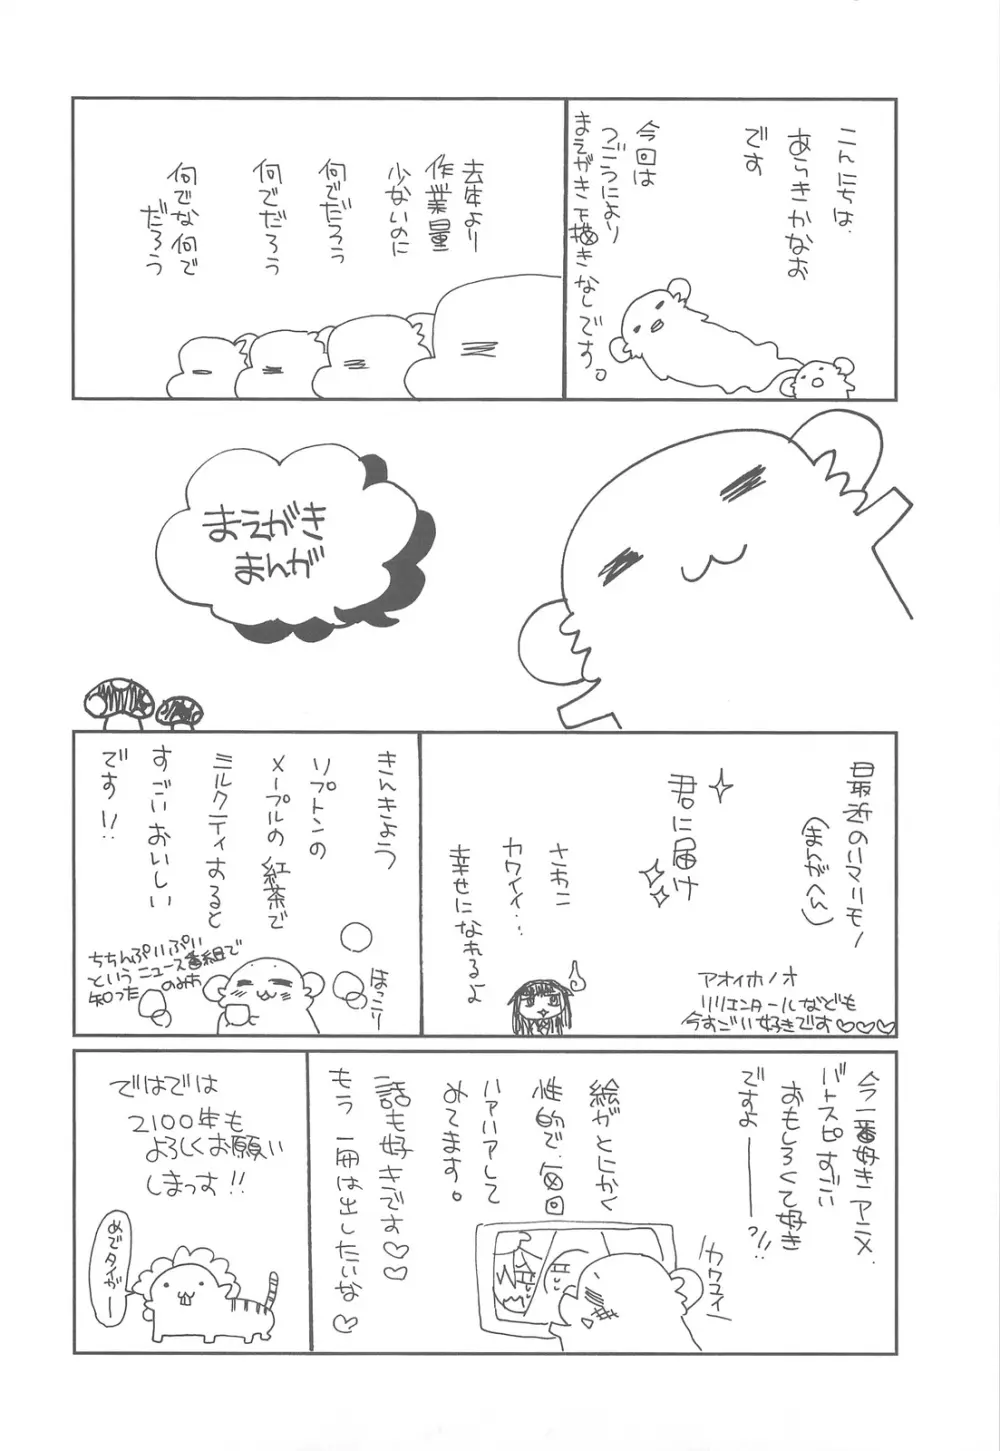 こんにちは
あらきかなお
です
今回は
つごうにより
まえがき下描きなしです。
去年より
作業量
少ないのに
何でだろう
何でだろう
何でな何で
だろう
まえがき
まんが
最近のハマリモノ
(まんがへん)
君に届け
さわこ
カワイイ…
幸せになれるよ
アオイホノオ
リリエンタールなども
今すごい好きです♡♡♡
きんきょう
リプトンの
メープルの紅茶で
ミルクティすると
すごいおいしい
です!!
ほっこり
ちちんぷいぷい
というニュース番組で
知った のみね
今一番好きアニメ
バトスピすごい
おもしろくて好き
ですよーーっ!!
絵がとにかく
性的で、毎回
ハァハァして
みてます。
話も好きです♡♡
もう一冊は出したいな♡
カワユイ
ではでは
2100年も
よろしくお願い
しまっす!!
めでタイガー